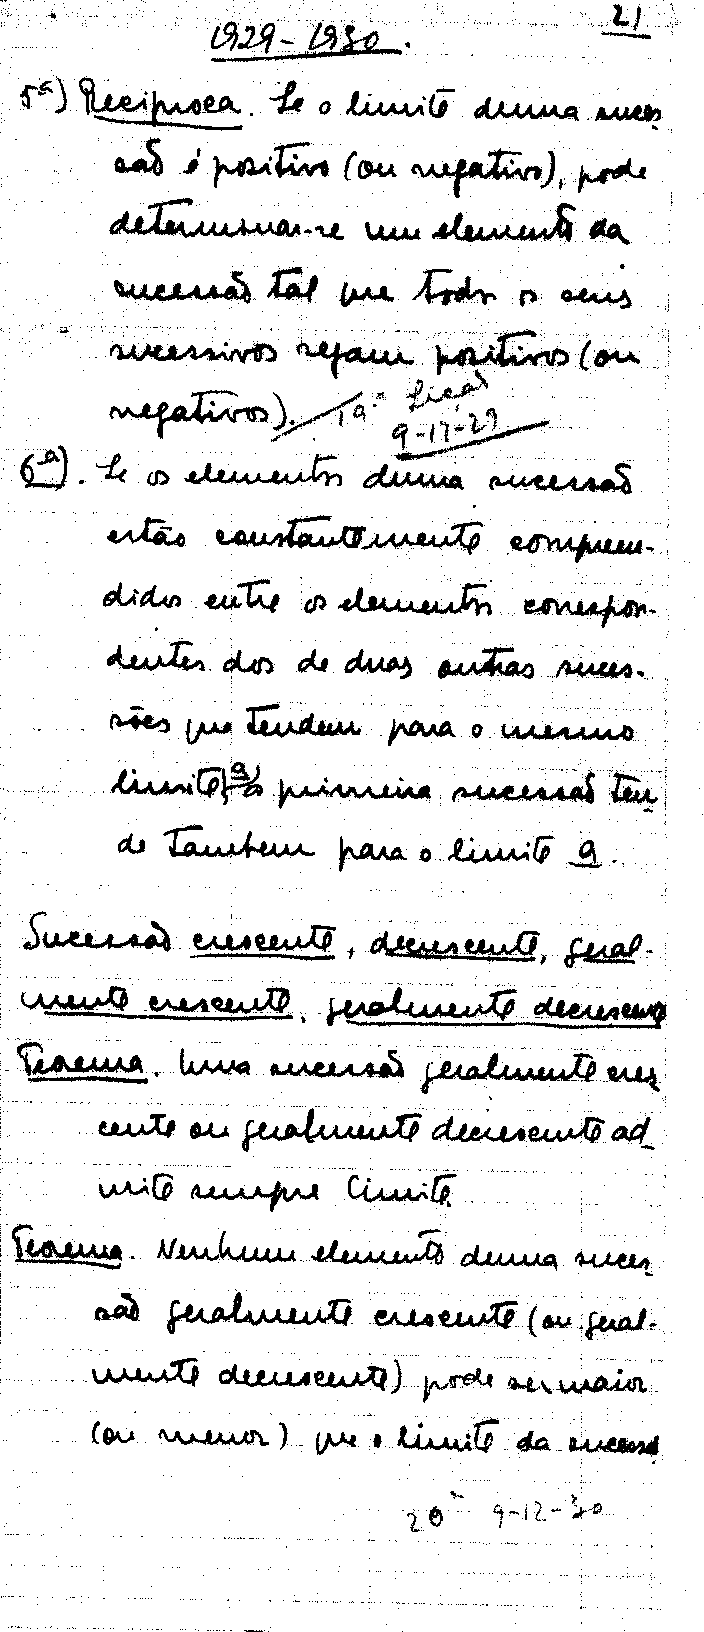 21
1929-1930.
5ª) Reciproca. Se o limite duma suces
são é positivo (ou negativo), pode
determinar-se um elemento da
sucessão tal que todos os seus
sucessivos sejam positivos (ou
negativos). 19ª Lição
9-12-29
6ª). Se os elementos duma sucessão
estão constantemente compreen-
didos entre os elementos correspon-
dentes dos de duas outras suces-
sões que tendem para o mesmo
limite a, a primeira sucessão ten
de tambem para o limite a.
Sucessão crescente, decrescente, geral-
mente crescente, geralmente decrescente
Teorema. Uma sucessão geralmente cres
cente ou geralmente decrescente ad
mite sempre limite.
Teorema. Nenhum elemento duma suces
são geralmente crescente (ou geral-
mente decrescente) pode ser maior
(ou menor) que o limite da sucessão
20ª 9-12-30